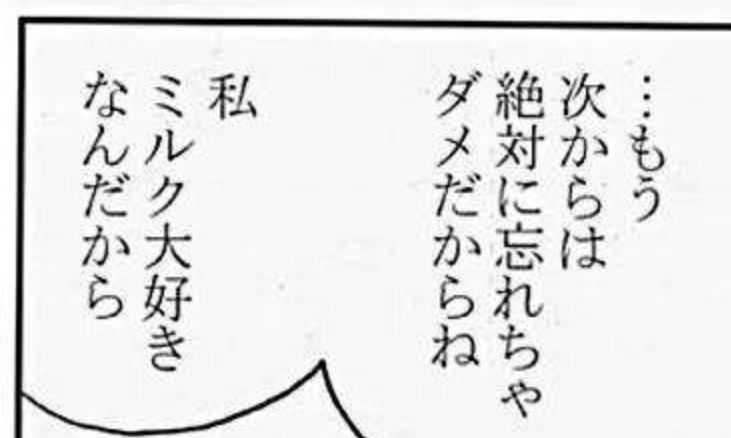 …もう
次からは
絶対に忘れちゃ
ダメだからね
私
ミルク大好き
なんだから